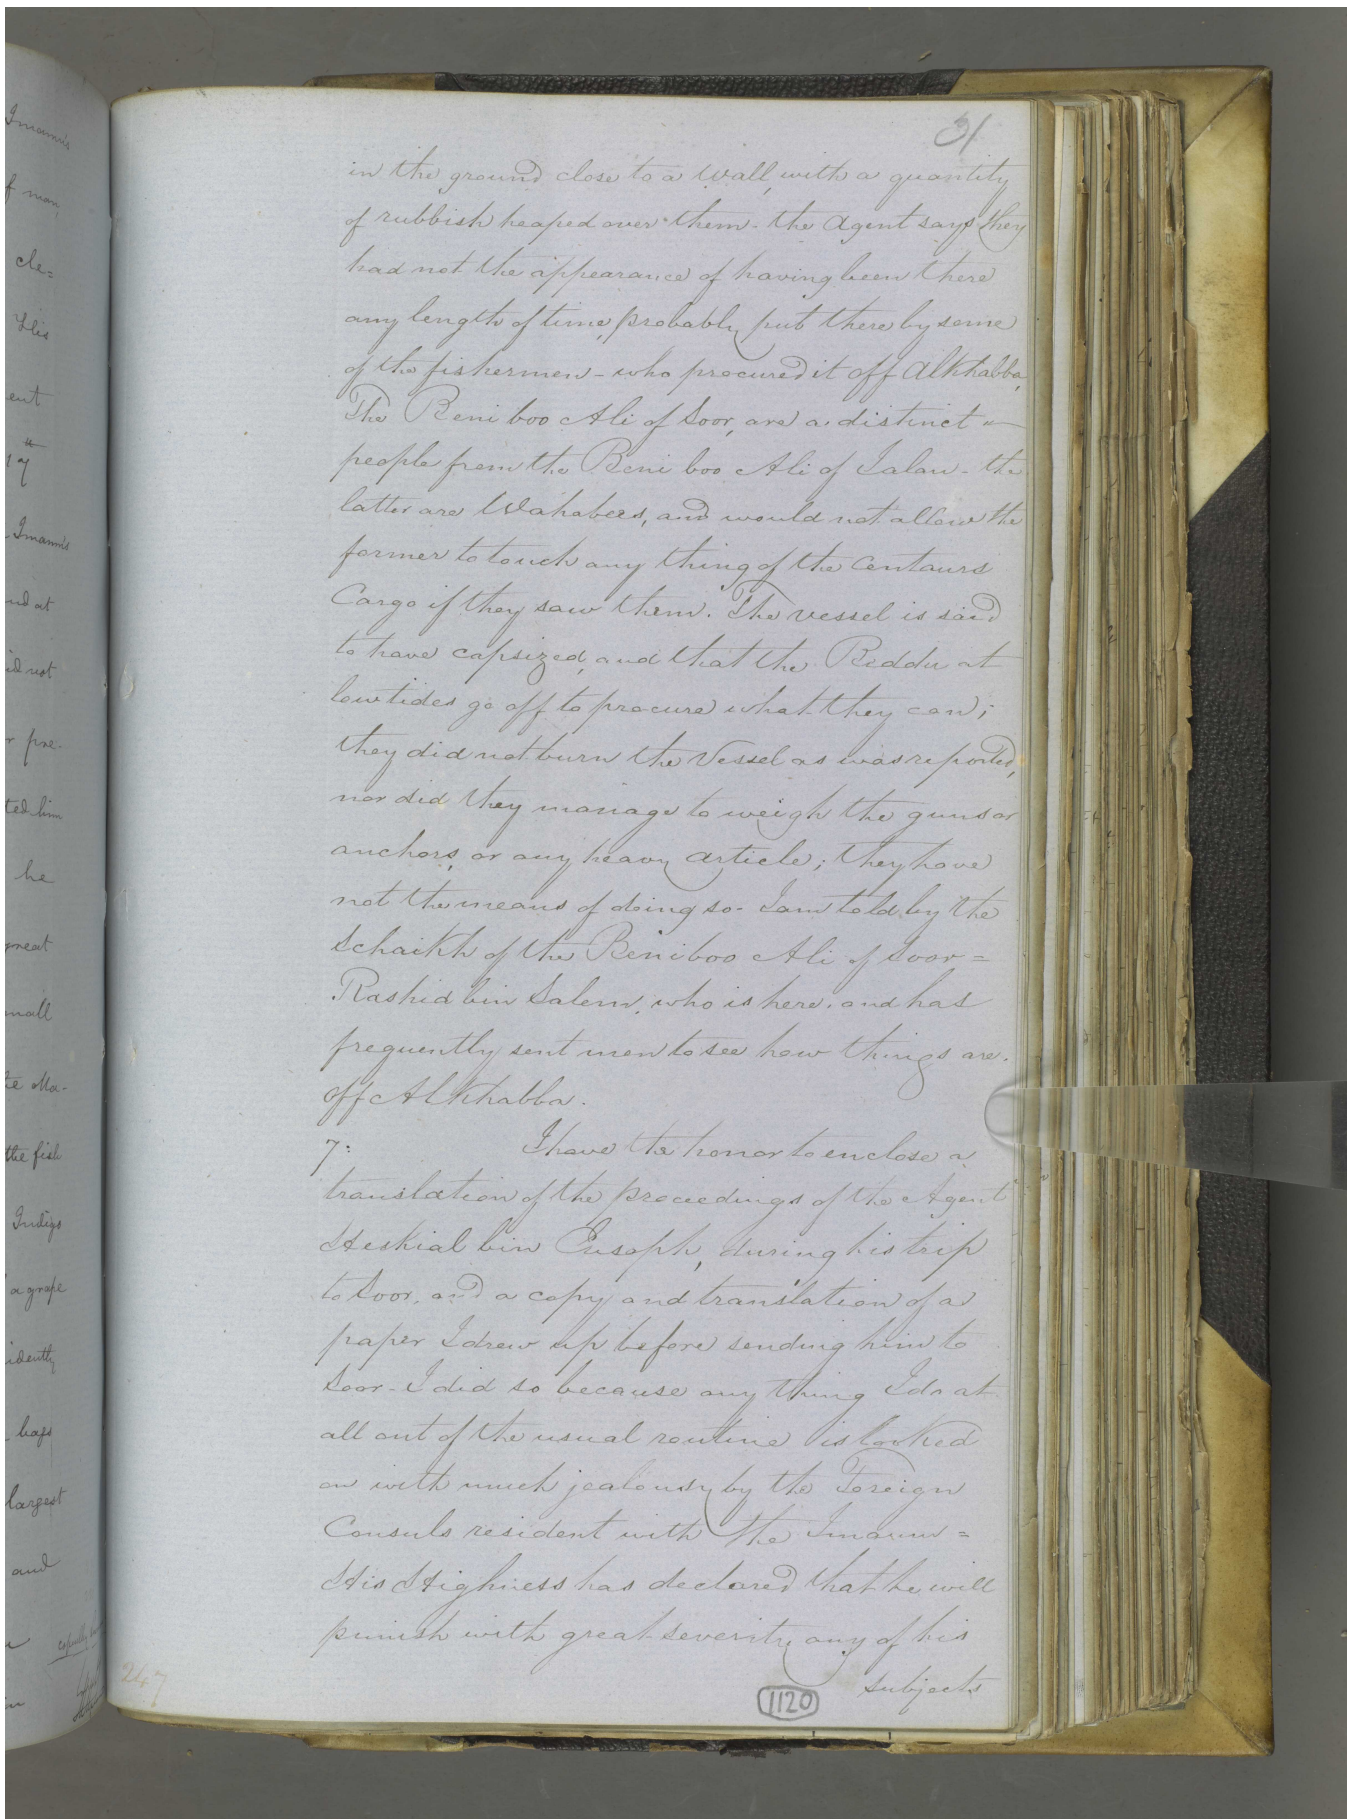 Imaum's
f man,
cle=
His
ent
17
Imaum's
and at
id not
r pre-
ted him
he
great
mall
te Ma-
the fish
Indigo
a grape
idently
bags
largest
and
31
in the ground close to a wall, with a quantity
of rubbish heaped over them - the Agent says they
had not the appearance of having been there
any length of time, probably put there by some
of the fishermen - who procured it off Alkhabba,
The Beni boo Ali of Soor, are a distinct =
people from the Beni boo Ali of Jalan - the
latter are Wahabees, and would not allow the
former to touch any thing of the Centaurs
Cargo if they saw them. The vessel is said
to have capsized, and that the Beddu at
low tides go off to procure what they can;
they did not burn the Vessel as was reported,
nor did they manage to weigh the guns or
anchors, or any heavy article; they have
not the means of doing so - I am told by the
Schaikh of the Beni boo Ali of Soor =
Rashid bin Salem, who is here, and has
frequently sent men to see how things are.
off Alkhabba.
7: I have the honor to enclose a
translation of the proceedings of the Agent
Heskial bin Eusoph, during his trip
to Soor, and a copy and translation of a
paper I drew up before sending him to
Soor - I did so because any thing I do at
all out of the usual routine is looked
on with much jealousy by the Foreign
Consuls resident with the Imaum =
His Highness has declared that he will
punish with great severity any of his
subjects
247
1120